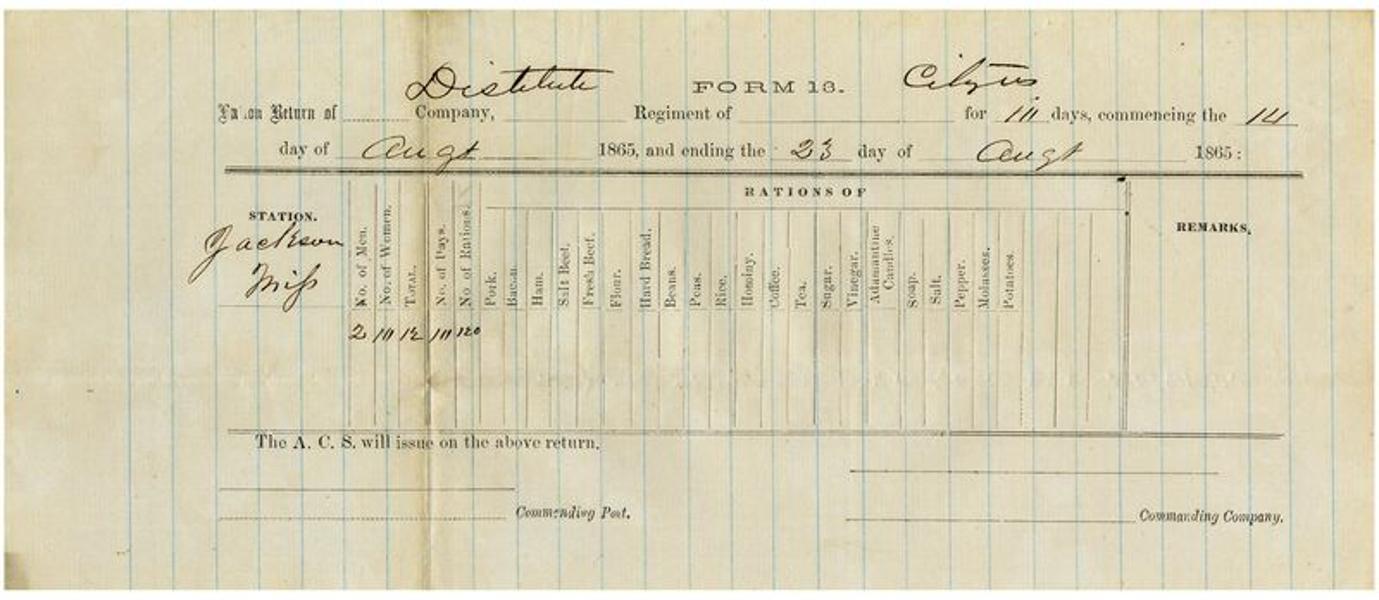 Distitute FORM 13. Citizens
Ration Return of Company, Regiment of for 10 days, commencing the 14
day of Augt 1865, and ending the 23 day of Augt 1865:
RATIONS OF
STATION. No. of Men. No. of Women. TOTAL. No. of Days. No. of Rations. Pork. Bacon. Ham. Salt Beef. Fresh Beef. Flour. Hard Bread. Beans. Peas. Rice. Hominy. Coffee. Tea. Sugar. Vinegar. Adamantine Candles. Soap. Salt. Pepper. Molasses. Potatoes. REMARKS.
Jackson
Miss
2 10 12 10 120
The A. C. S. will issue on the above return.
Commending Post. Commanding Company.